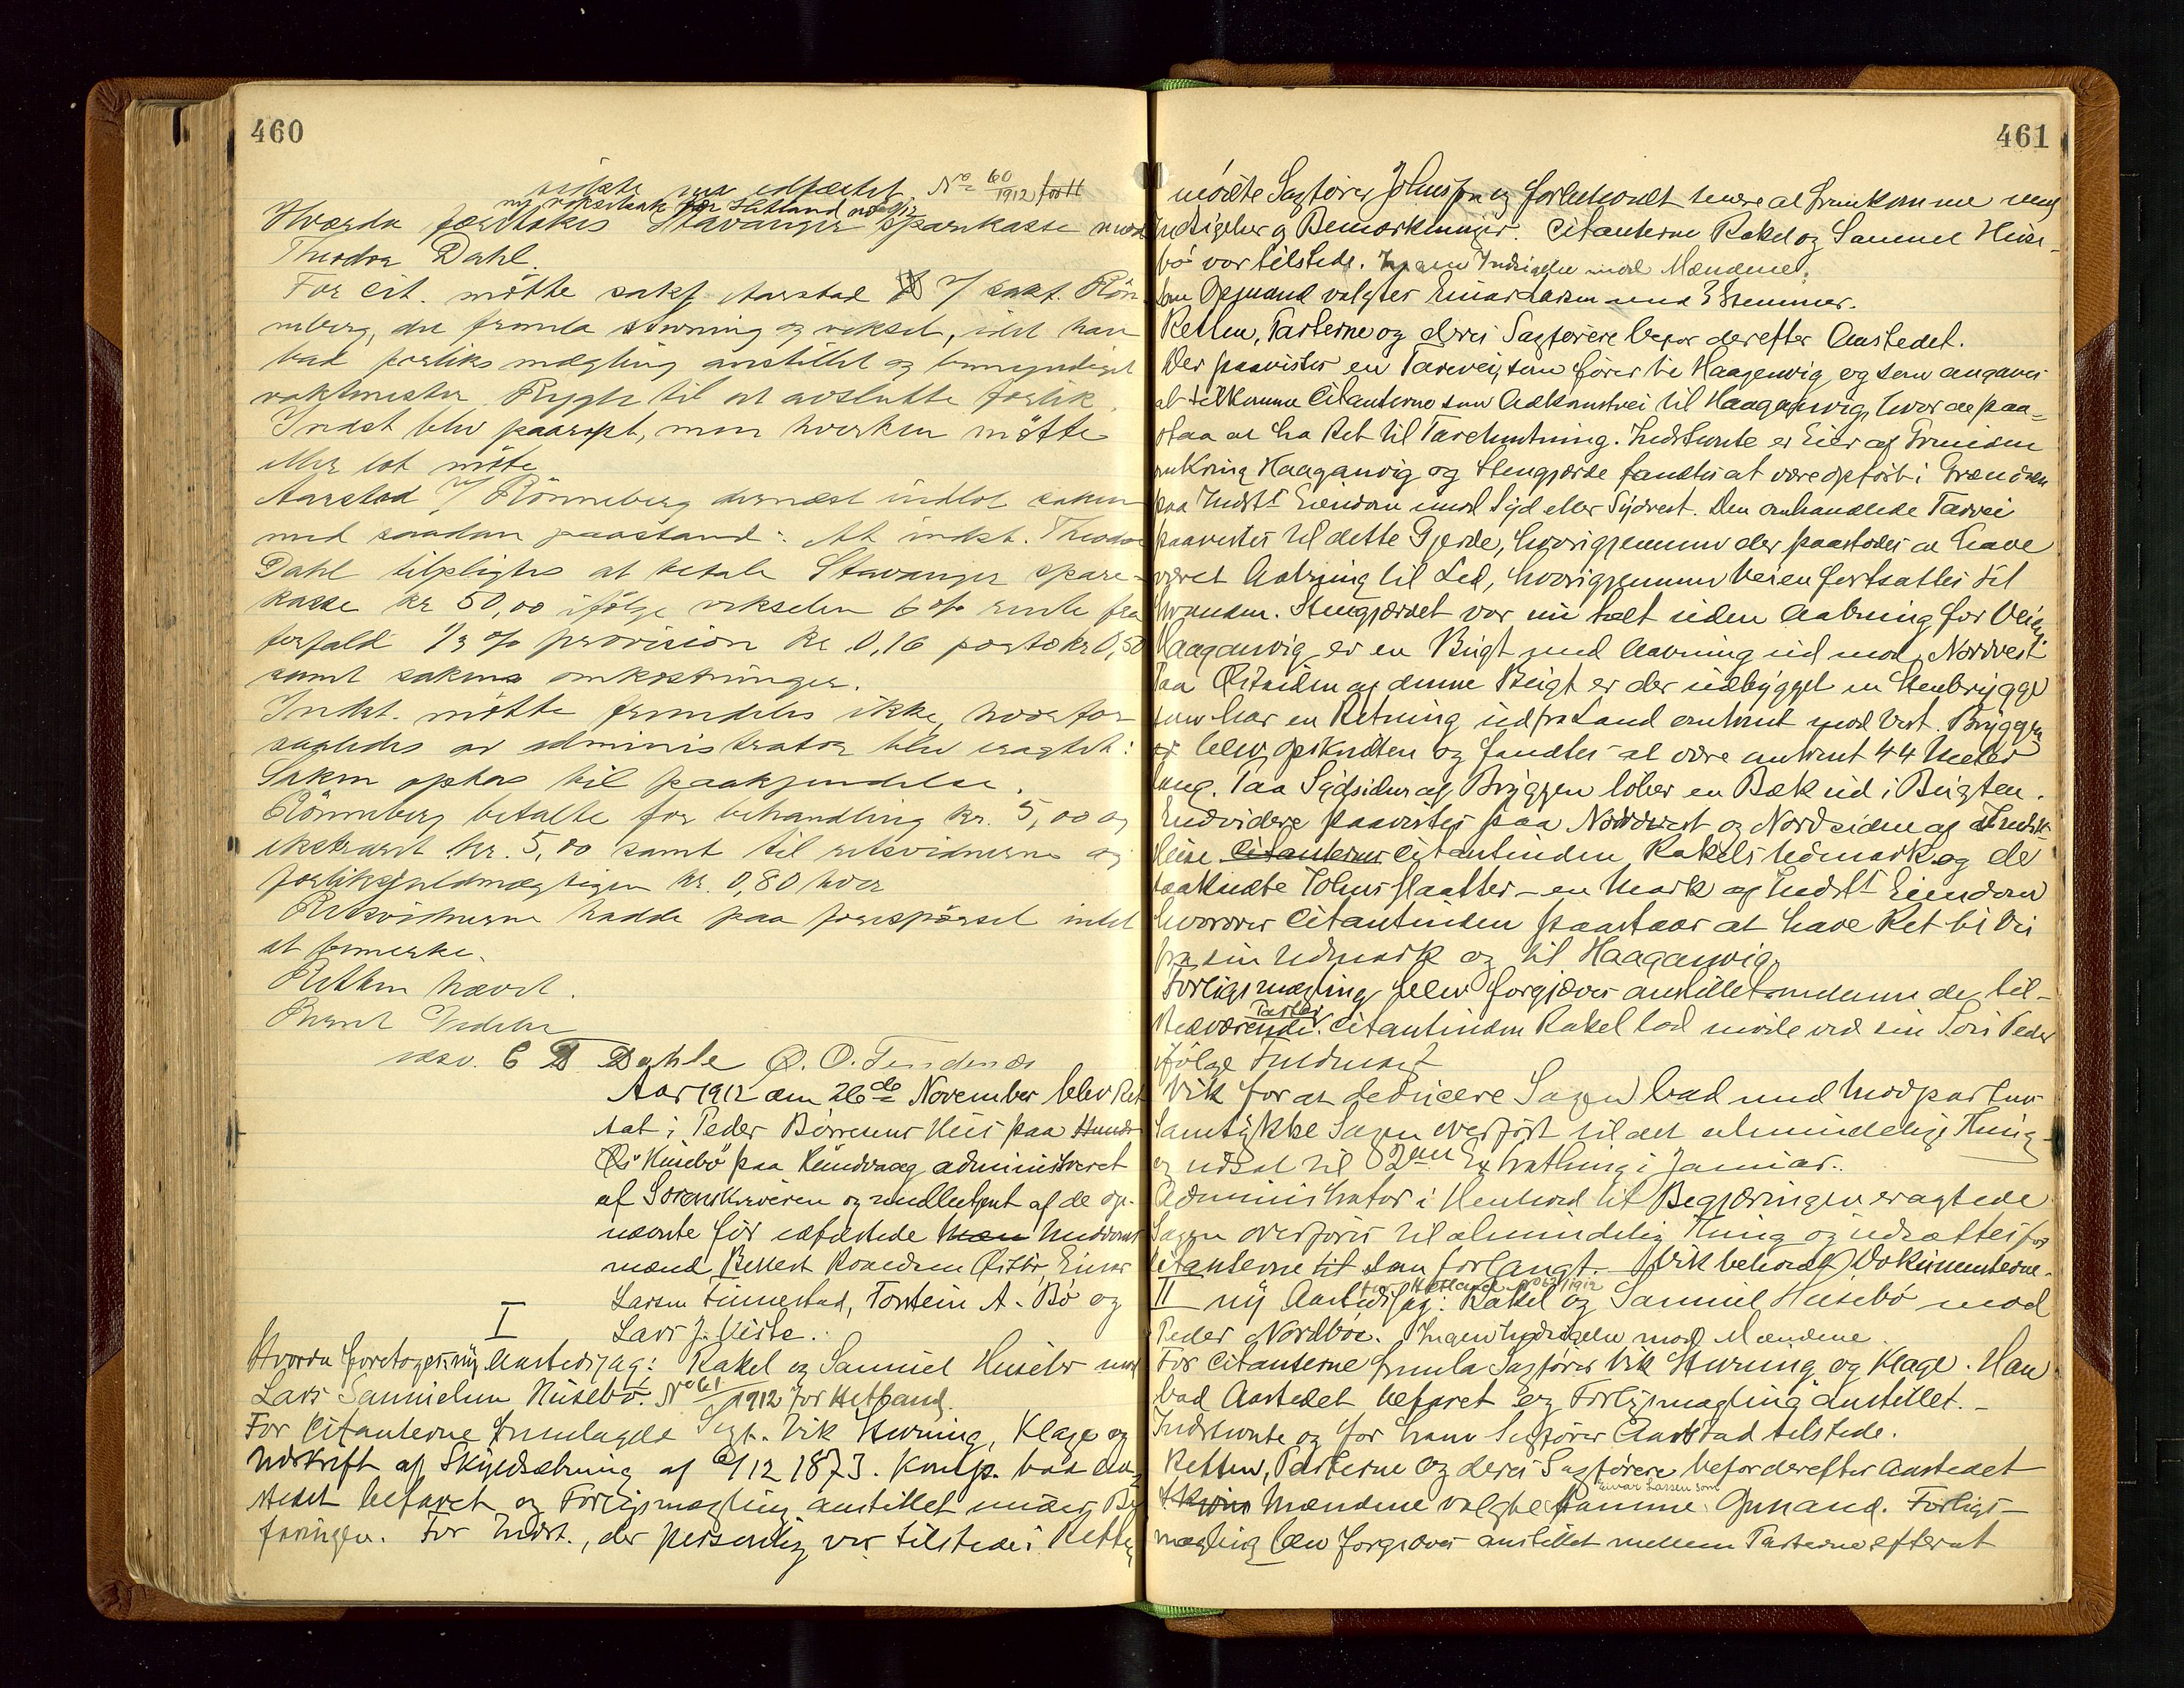 460
No 60/1912
ny vekselsak for Hetland
Hvorda foretokes Stavanger Sparekasse mod
Theodor Dahl.
For cit. møtte sakf. Aarstad f/ sakf. Røn-
neberg, der fremla stevning og veksel, idet han
bad forliksmægling anstillet og bemyndiget
vaktmester Rygh til at avslutte forlik.
Indst blev paaropt, men hverken møtte
eller lot møte.
Aarstad f/ Rønneberg dernæst indlot saken
med saadan paastand: At indst. Theodor
Dahl tilpligtes at betale Stavanger spare-
kasse kr 50,00 ifølge vekselen 6 o/o rente fra
forfald 1/3 o/o provision kr 0,16 porto kr 0,50
samt sakens omkostninger.
Indst. møtte fremdeles ikke, hvorfor
saaledes av administrator blev eragtet:
Saken optas til paakjendelse.
Rønneberg betalte for behandling kr. 5,00 og
ekstraret kr. 5,00 samt til retsvidnerne og
forliksfuldmægtigen kr. 0,80 hver
Retsvidnerne hadde paa forespørsel intet
at bemerke.
Retten hævet.
Bernt Vedeler
C D Dahle O. O. Tendenes
Aar 1912 den 26de November blev Ret
sat i Peder Børresens Hus paa
Husebø paa Hundvaag administreret
af Sorenskriveren og medbetjent af de op-
nævnte før edfæstede Meddoms
mænd Berent Knudsen Østbø, Einar
Larsen Finnestad, Torstein A. Bø og
Lars J. Viste.
I
Hvorda foretoges ny Aastedssag: Rakel og Samuel Husebø mod
Lars Samuelsen Husebø. No 61/1912 for Hetland.
For Citanterne fremlagde Sagf. Vik Stevning, Klage og
Udskrift af Skyldsætning af 6/12 1873. Komp. bad Aa-
stedet befaret og Forligsmægling anstillet under Be-
faringen. For Indst., der personlig var tilstede i Retten
461
mødte Sagfører Johnsen og forbeholdt senere at fremkomme med
Indsigelser og Bemærkninger. Citanterne Rakel og Samuel Huse-
bø var tilstede. Ingen Indsigelse mod Mændene.
Som Opmand valgtes Einar Larsen med 3 Stemmer.
Retten, Parterne og deres Sagførere befor derefter Aastedet.
Der paavistes en Tarevei, som fører til Haaganvig og som angaves
at tilkomme Citanterne som Adkomstvei til Haaganvig, hvor de paa-
staa at ha Ret til Tarehentning. Indstevnte er Eier af Grunden
omkring Haaganvig og Stengjærde fandtes at være opført i Grændsen
paa Indsts Eiendom mod Syd eller Sydvest. Den omhandlede Tarevei
paavistes til dette Gjerde, hvorigjennem der paastodes at have
været Aabning til Led, hvorigjennem Veien fortsattes til
Stranden. Stengjærdet var nu helt uden Aabning for Vei.
Haaganvig er en Bugt med Aabning ud mod Nordvest.
Paa Østsiden af denne Bugt er der udbygget en Stenbrygge
som har en Retning ud fra Land omtrent mod Vest. Bryggen
blev opskridten og fandtes at være omtrent 44 Meter
lang. Paa Sydsiden af Bryggen løber en Bæk ud i Bugten.
Endvidere paavistes paa Nordvest og Nordsiden af
Citantinden Rakels Udmark og de
saakaldte Johns flaatter - en Mark af Indsts Eiendom
hvorover Citantinden paastaar at have Ret til Vei
fra sin Udmark og til Haaganvig.
Forligsmægling blev forgjæves anstillet mellem de til-
stedværende Parter. Citantinden Rakel lod møde ved sin Søn Peder
ifølge Fuldmagt
Vik for at deducere Sagen bad med Modpartens
Samtykke Sagen overført til det almindelige Thing
og udsat til 2den Extrathing i Januar.
Administrator i Henhold til Begjæringen eragtede
Sagen overføres til almindelig Thing og udsættes for
Citanterne som forlangt. Vik beholdt Dokumenterne.
II ny Aastedssag: Rakel og Samuel Husebø mod
for Hetland No 62/1912
Peder Nordbøe. Ingen Indsigelse mod Mændene.
For Citanterne fremla Sagfører Vik Stevning og Klage. Han
bad Aastedet befaret og Forligsmægling anstillet. -
Indstevnte og for ham Sagfører Aarstad tilstede.
Retten, Parterne og deres Sagførere befor derefter Aastedet
Mændene valgte Einar Larsen som Opmand. Forligs-
mægling blev forgjæves anstillet mellem Parterne efter at